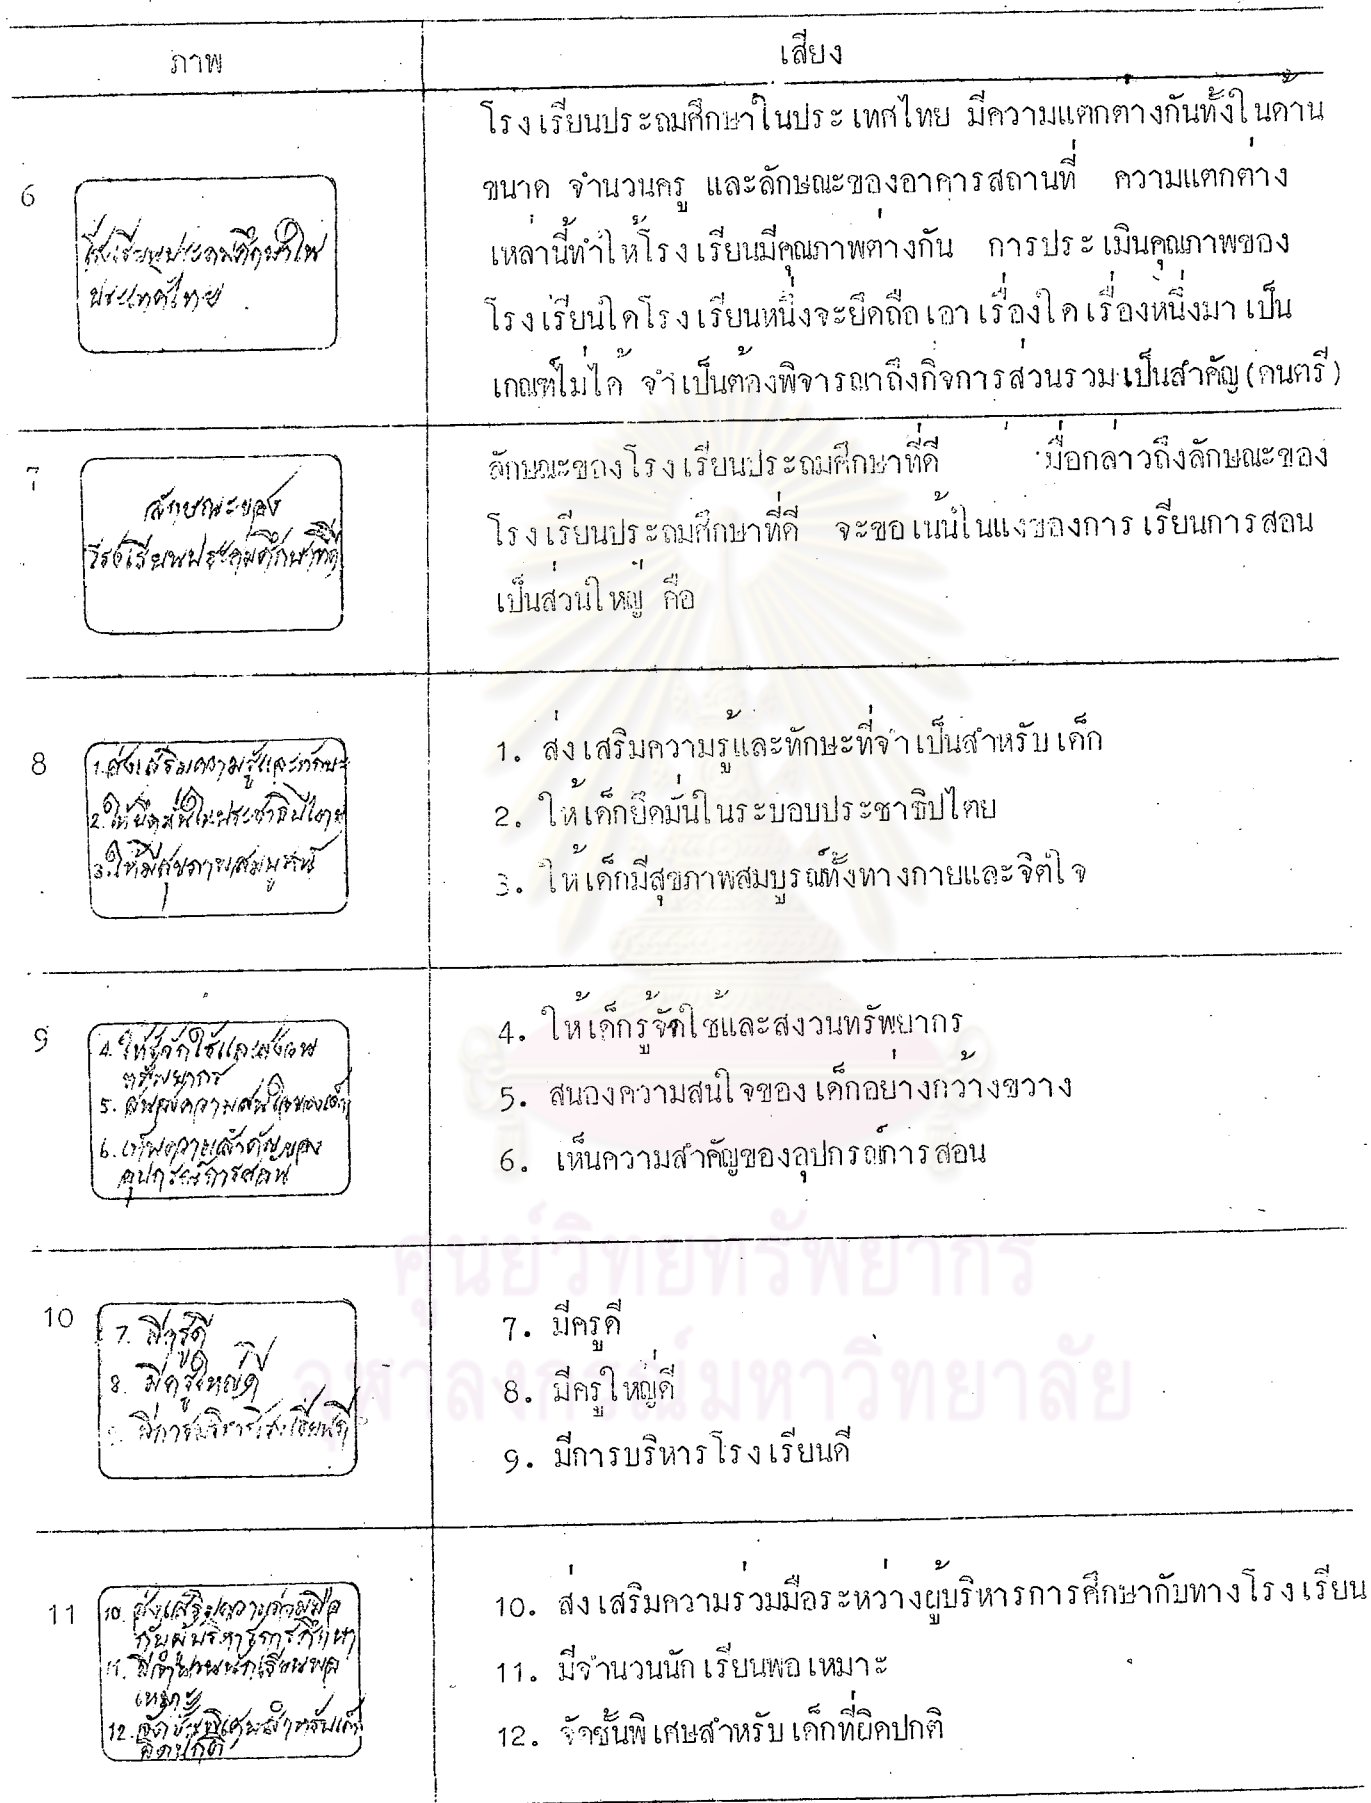 ภาพ
เสียง
6
โรงเรียนประถมศึกษาใน
ประเทศไทย
โรงเรียนประถมศึกษาในประเทศไทย มีความแตกต่างกันทั้งในด้าน
ขนาด จำนวนครู และลักษณะของอาคารสถานที่ ความแตกต่าง
เหล่านี้ทำให้โรงเรียนมีคุณภาพต่างกัน การประเมินคุณภาพของ
โรงเรียนใดโรงเรียนหนึ่งจะยึดถือเอาเรื่องใดเรื่องหนึ่งมาเป็น
เกณฑ์ไม่ได้ จำเป็นต้องพิจารณาถึงกิจการส่วนรวมเป็นสำคัญ (ดนตรี)
7
ลักษณะของ
โรงเรียนประถมศึกษาที่ดี
ลักษณะของโรงเรียนประถมศึกษาที่ดี เมื่อกล่าวถึงลักษณะของ
โรงเรียนประถมศึกษาที่ดี จะขอเน้นในแง่ของการเรียนการสอน
เป็นส่วนใหญ่ คือ
8
1. ส่งเสริมความรู้และทักษะ
2. ให้ยึดมั่นในประชาธิปไตย
3. ให้มีสุขภาพสมบูรณ์
1. ส่งเสริมความรู้และทักษะที่จำเป็นสำหรับเด็ก
2. ให้เด็กยึดมั่นในระบอบประชาธิปไตย
3. ให้เด็กมีสุขภาพสมบูรณ์ทั้งทางกายและจิตใจ
9
4. ให้รู้จักใช้และสงวน
ทรัพยากร
5. สนองความสนใจของเด็ก
6. เห็นความสำคัญของ
อุปกรณ์การสอน
4. ให้เด็กรู้จักใช้และสงวนทรัพยากร
5. สนองความสนใจของเด็กอย่างกว้างขวาง
6. เห็นความสำคัญของอุปกรณ์การสอน
10
7. มีครูดี
8. มีครูใหญ่ดี
9. มีการบริหารโรงเรียนดี
7. มีครูดี
8. มีครูใหญ่ดี
9. มีการบริหารโรงเรียนดี
11
10. ส่งเสริมความร่วมมือ
กับผู้บริหารการศึกษา
11. มีจำนวนนักเรียนพอ
เหมาะ
12. จัดชั้นพิเศษสำหรับเด็ก
ผิดปกติ
10. ส่งเสริมความร่วมมือระหว่างผู้บริหารการศึกษากับทางโรงเรียน
11. มีจำนวนนักเรียนพอเหมาะ
12. จัดชั้นพิเศษสำหรับเด็กที่ผิดปกติ
ศูนย์วิทยทรัพยากร
จุฬาลงกรณ์มหาวิทยาลัย